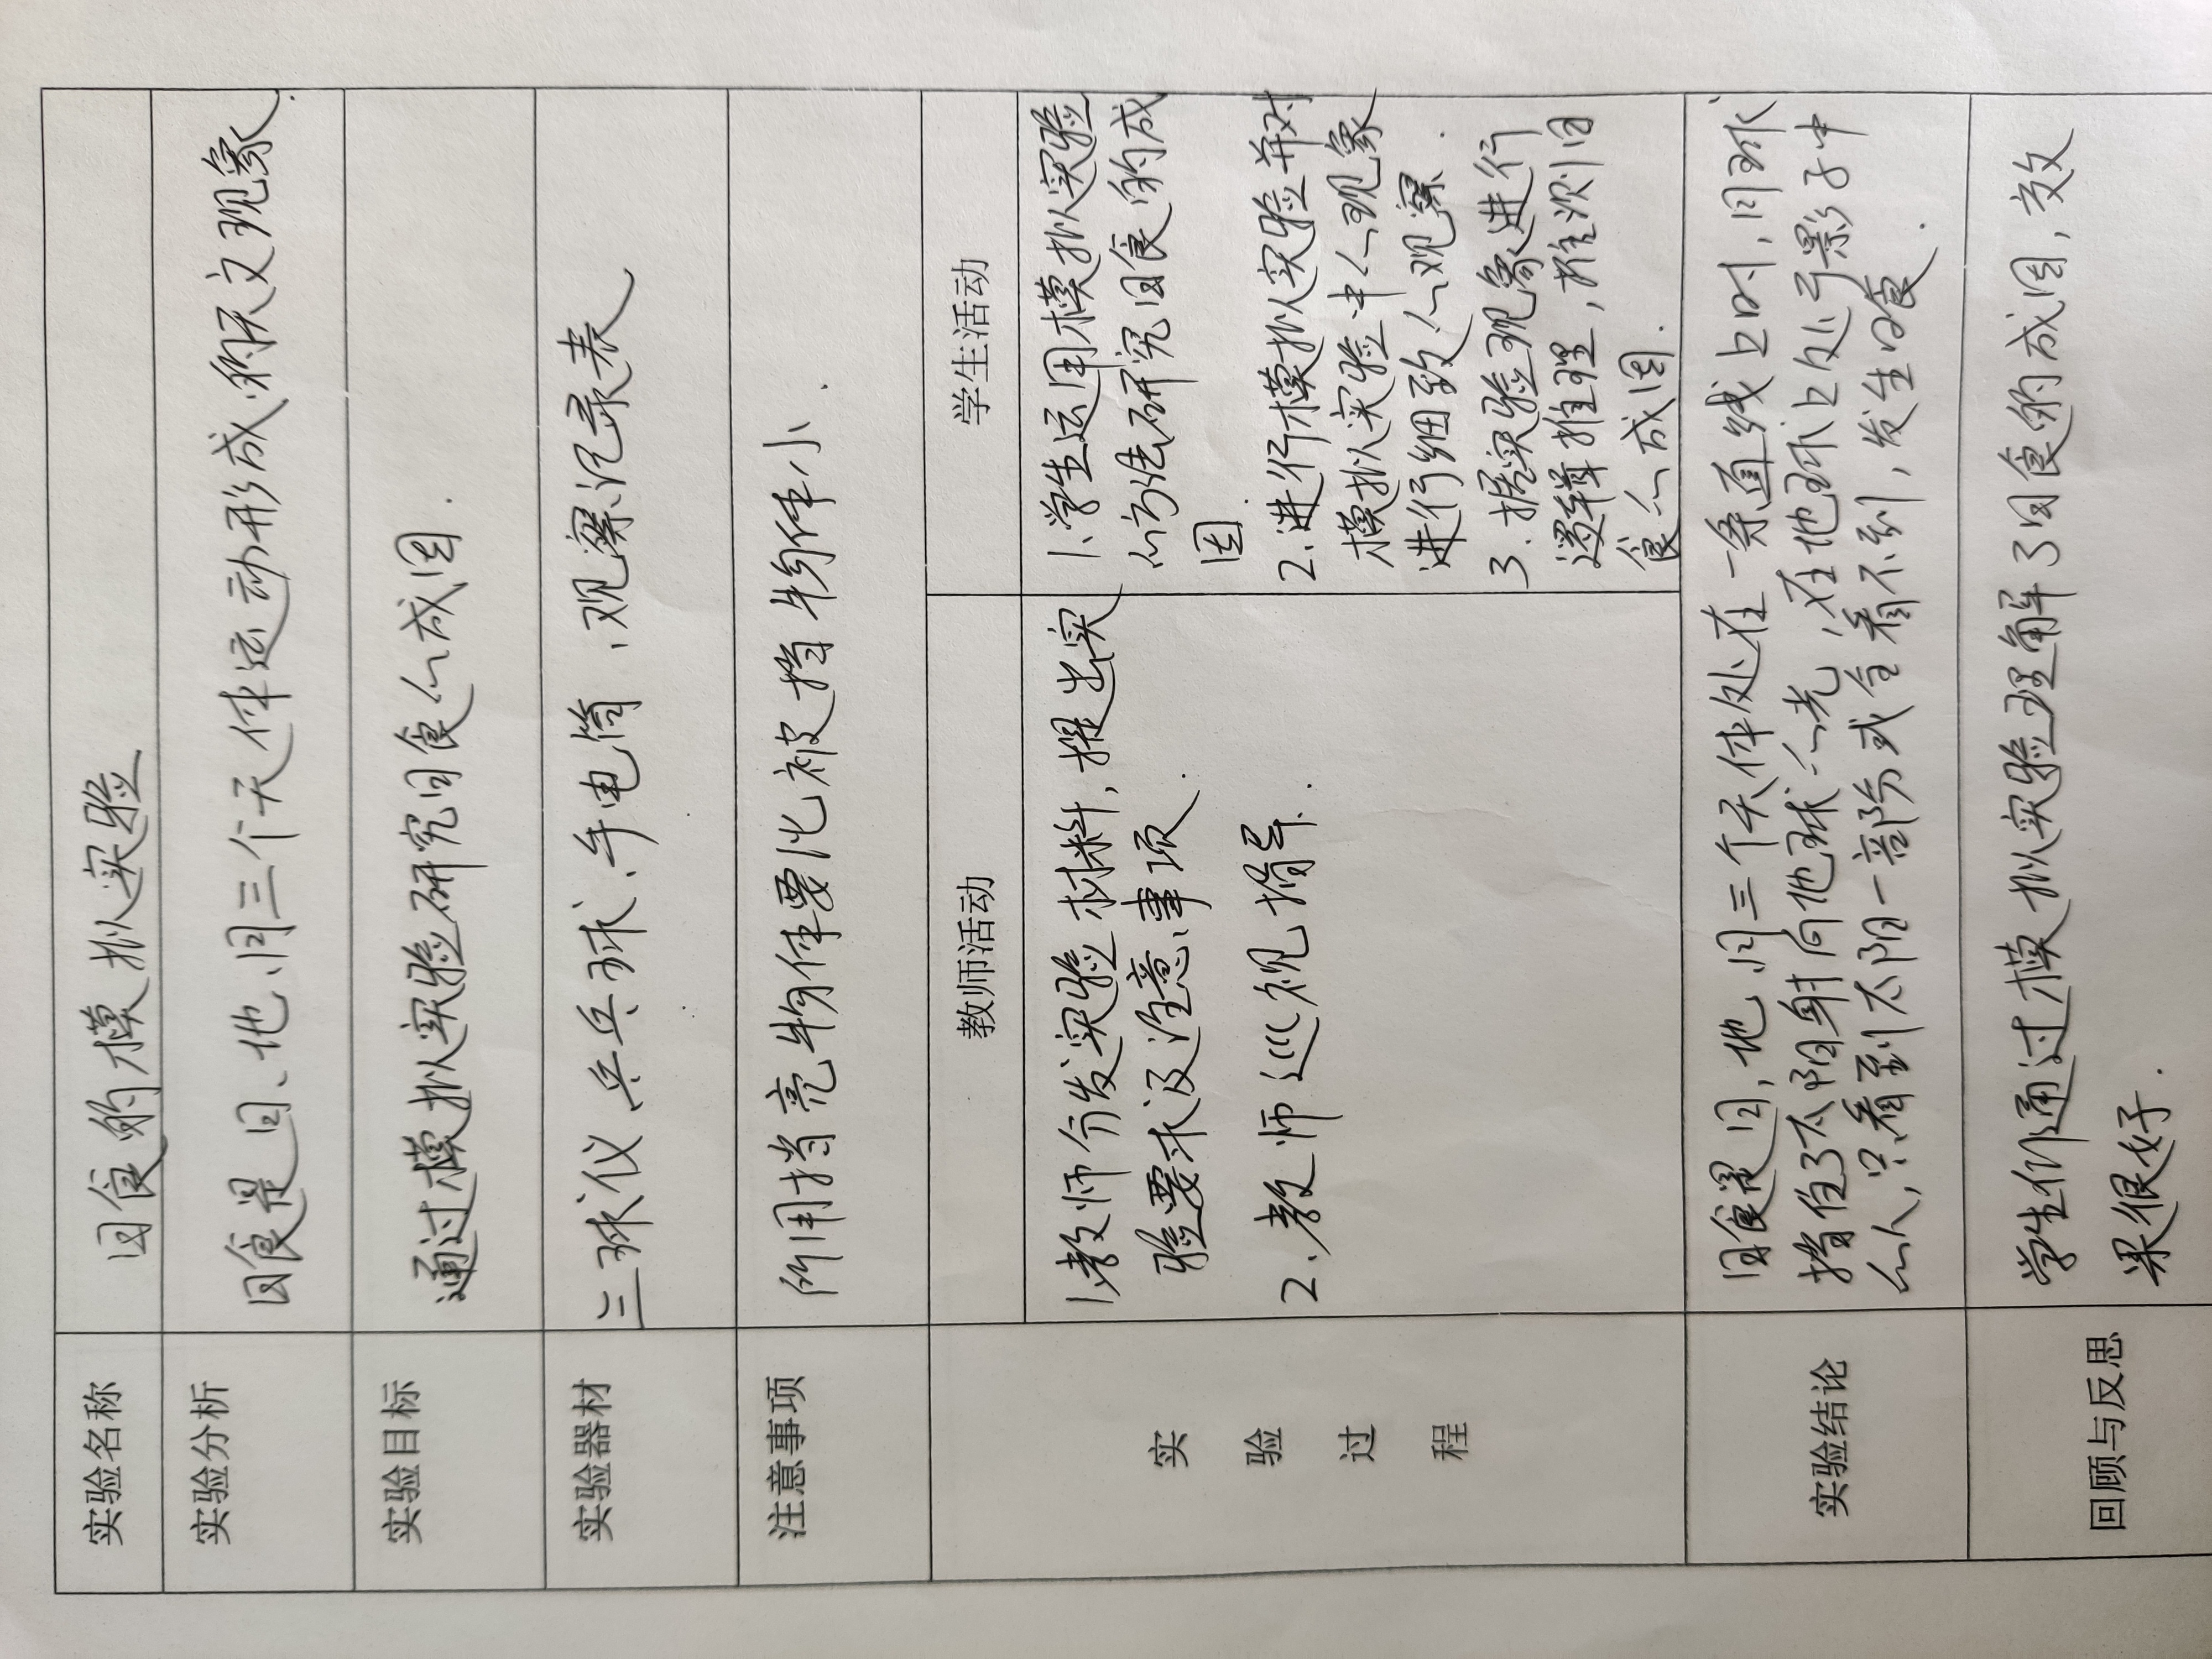 实验名称
日食的模拟实验
实验分析
日食是日、地、月三个天体运动形成的天文现象.
实验目标
通过模拟实验研究日食的成因.
实验器材
三球仪、乒乓球、手电筒、观察记录表
注意事项
所用挡亮物体要比被挡物体小.
实验过程
教师活动
1.教师分发实验材料,提出实
验要求及注意事项.
2.教师巡视指导.
学生活动
1.学生运用模拟实验
的方法研究日食的成
因.
2.进行模拟实验并对
模拟实验中的现象
进行细致的观察.
3.据实验现象进行
逻辑推理,推测日
食的成因.
实验结论
日食是日,地,月三个天体处在一条直线上时,月球
挡住了太阳射向地球的光,在地球上处于影子中
的人,只看到太阳一部分或全看不到,发生日食.
回顾与反思
学生们通过模拟实验理解了日食的成因,效
果很好.